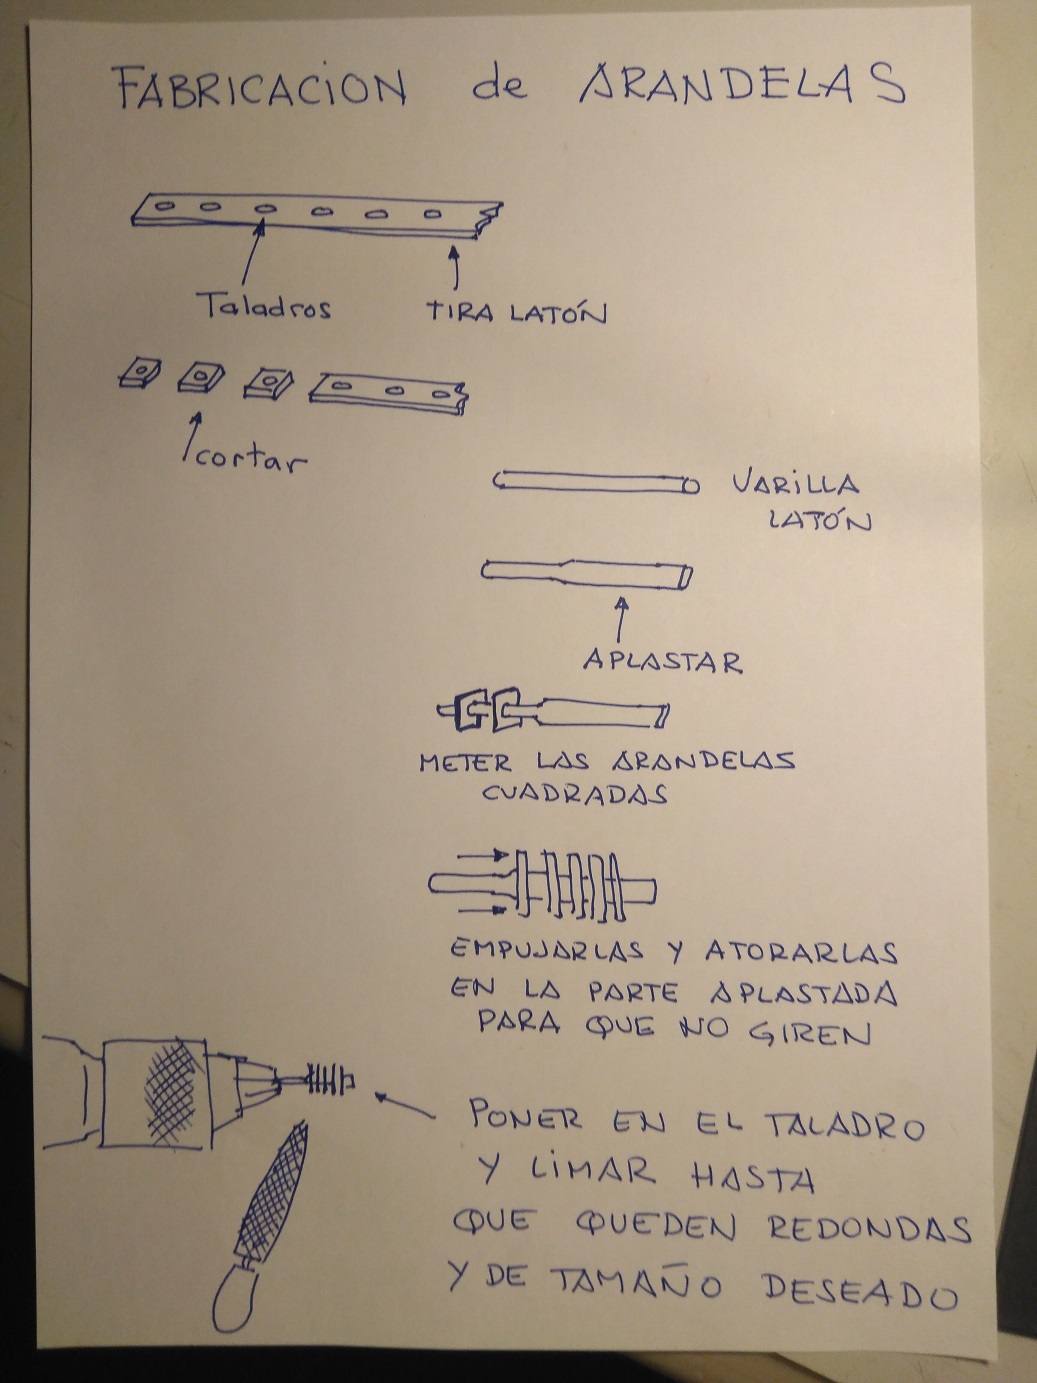 FABRICACION de ARANDELAS
Taladros
TIRA LATÓN
cortar
VARILLA
LATÓN
APLASTAR
METER LAS ARANDELAS
CUADRADAS
EMPUJARLAS Y ATORARLAS
EN LA PARTE APLASTADA
PARA QUE NO GIREN
PONER EN EL TALADRO
Y LIMAR HASTA
QUE QUEDEN REDONDAS
Y DE TAMAÑO DESEADO